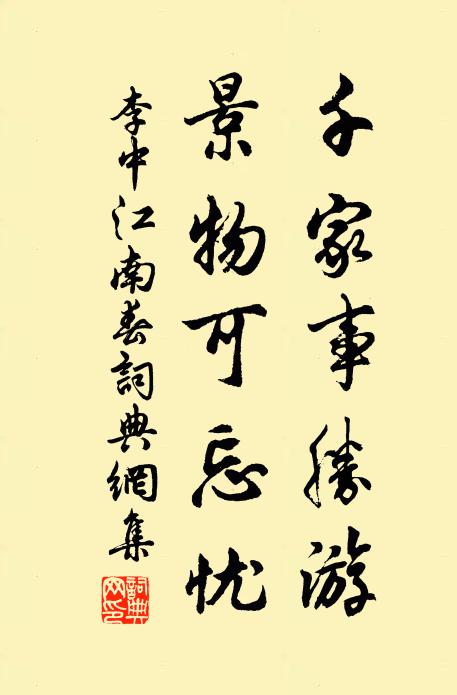 千家事勝游
景物可忘忧
李中江南春詞典網集
詞典網印